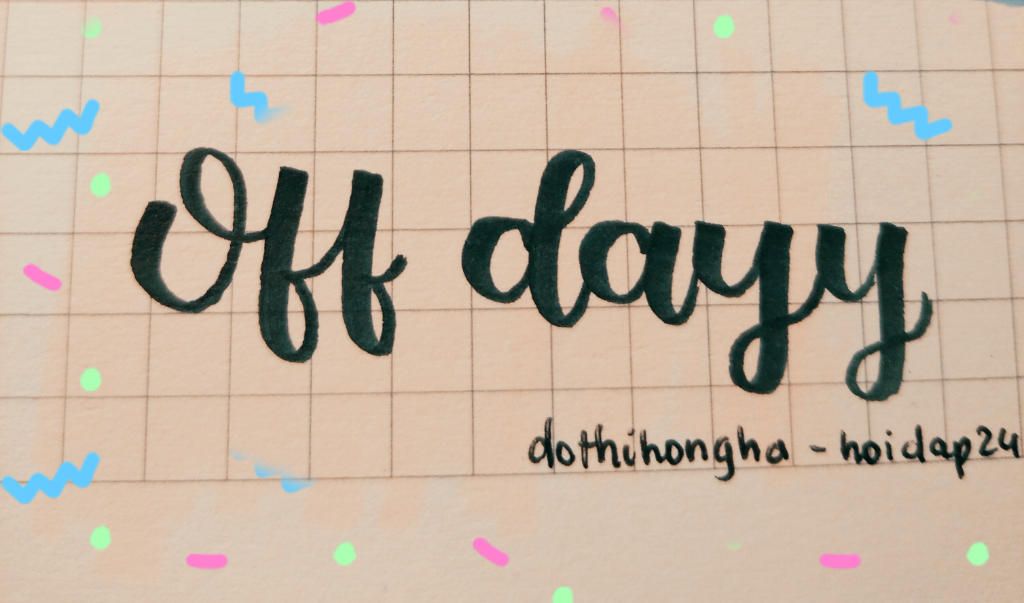 Off dayy
dothihongha - hoidap24